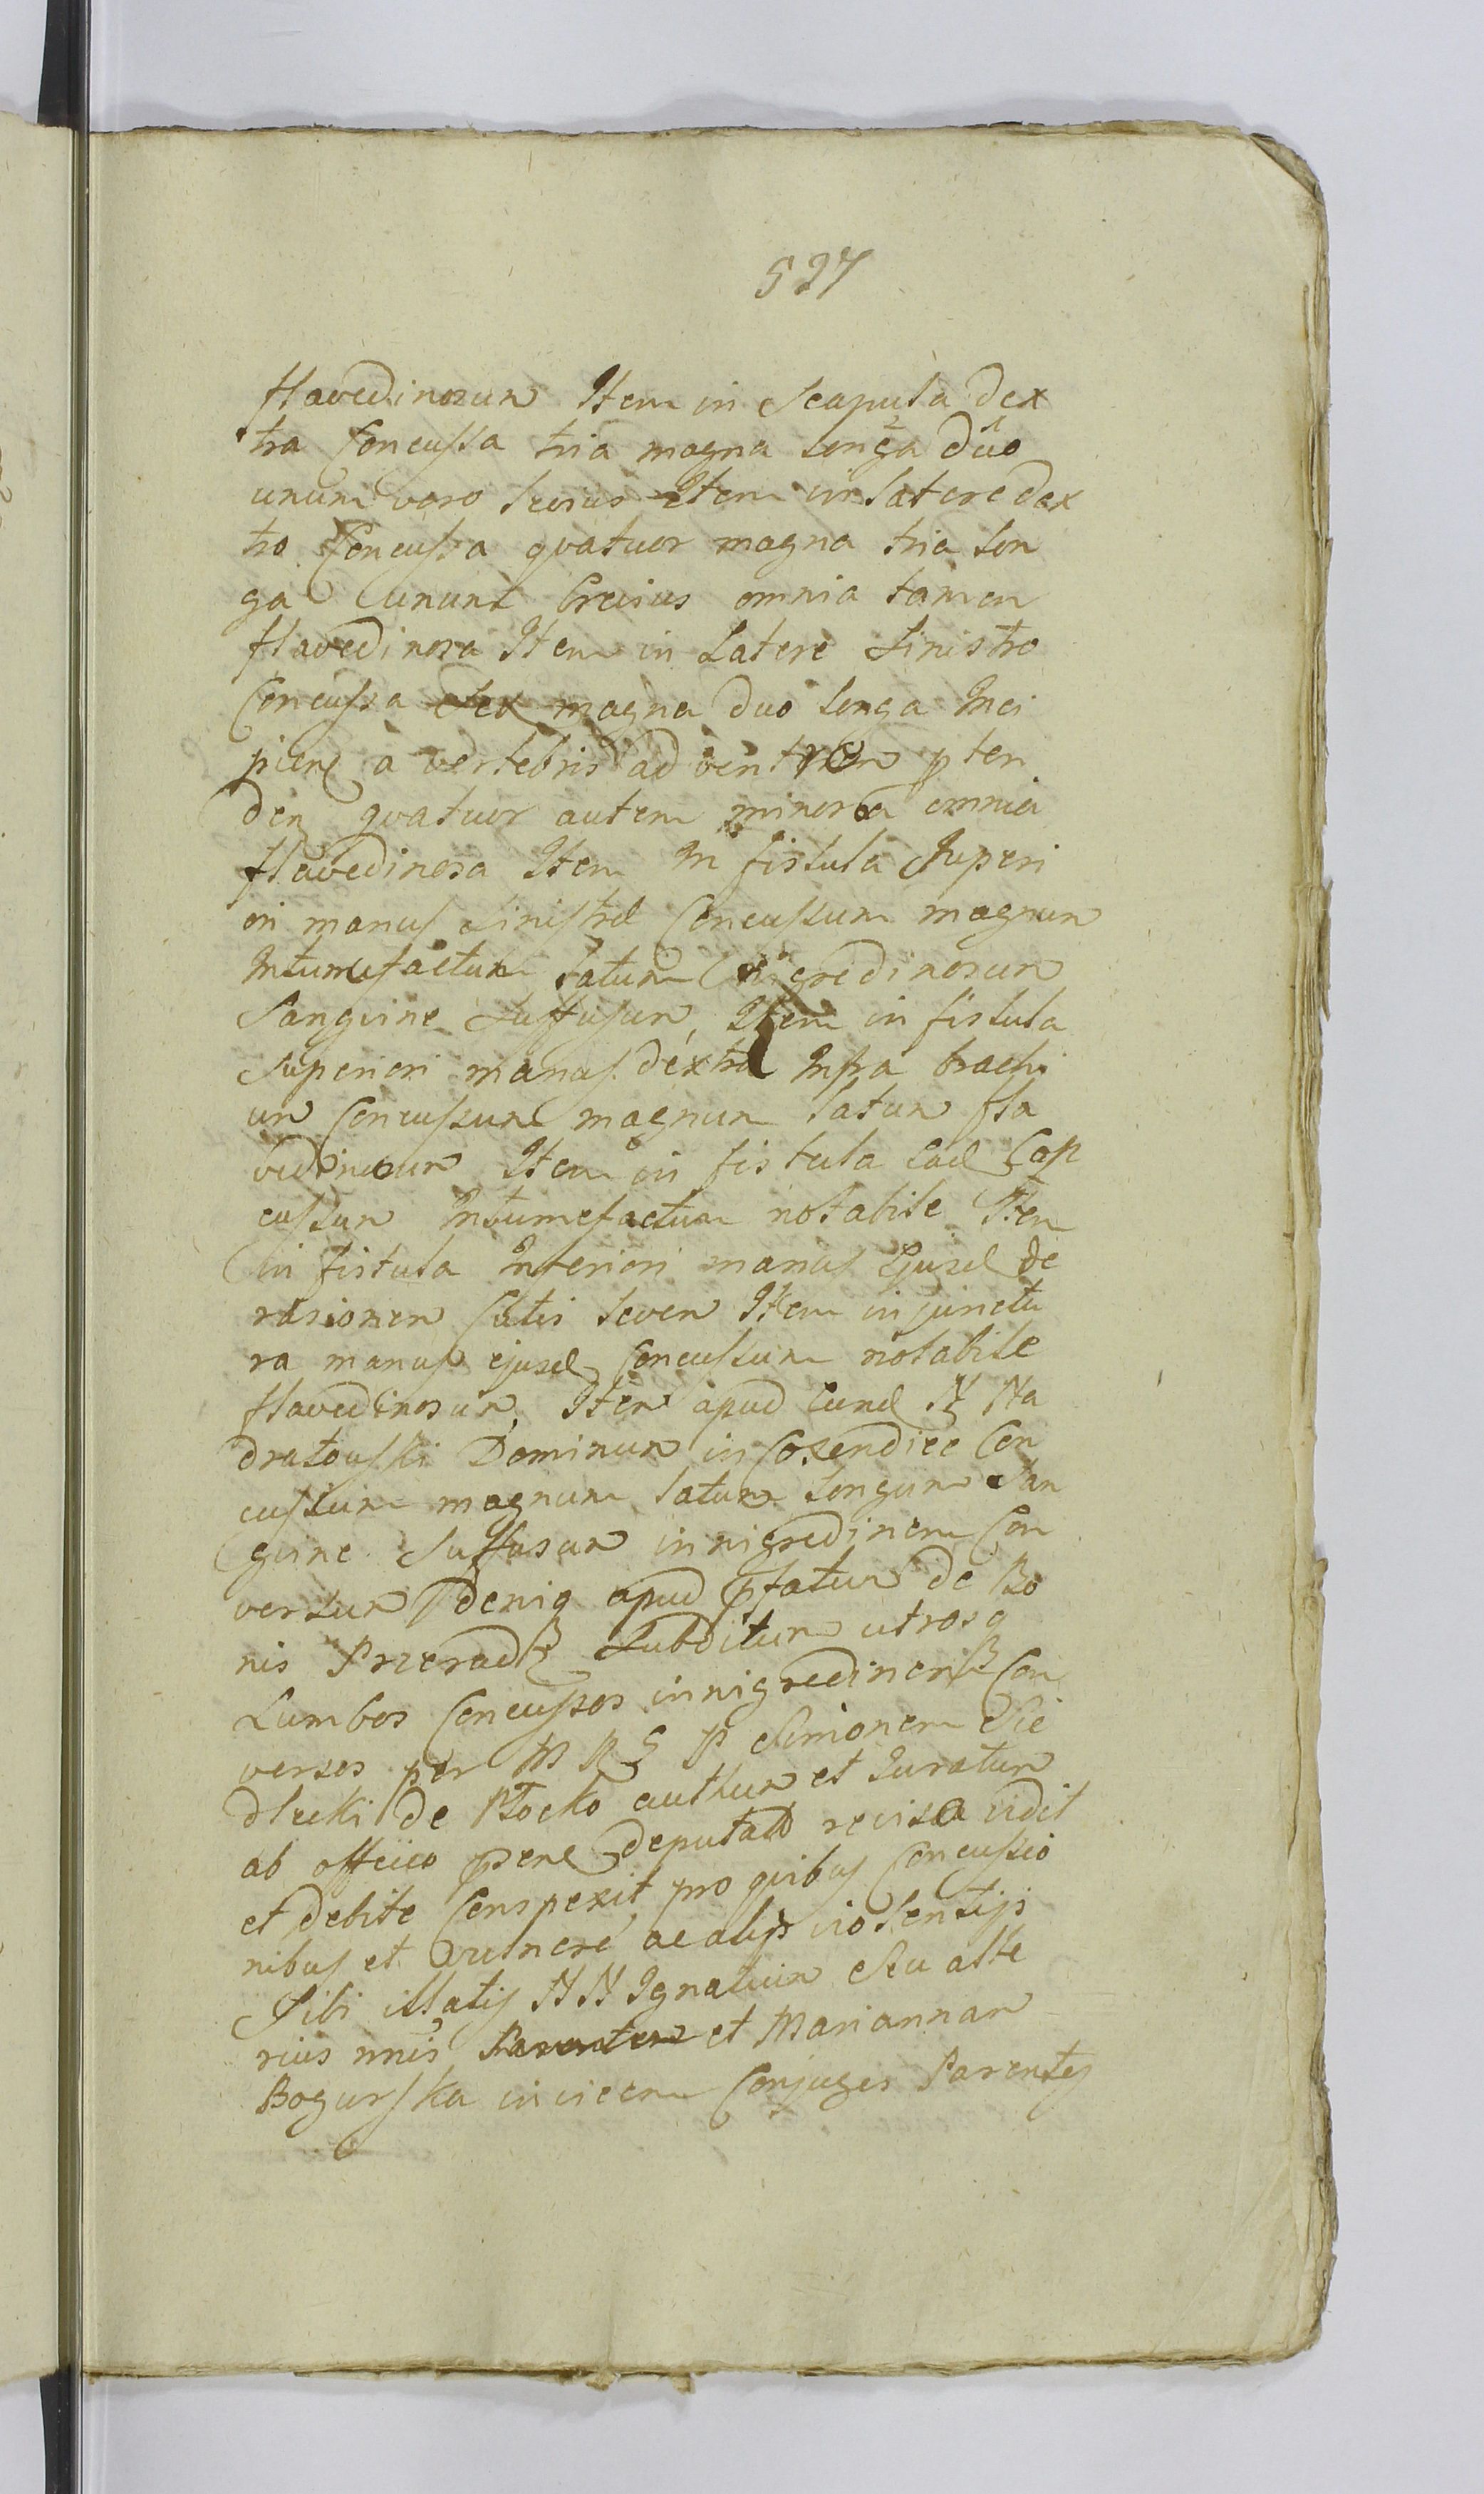 527
flavedinosum Item in Scapula dex
tra Concussa tria magna longa duo
unum vero brevius Item in latere dex
tro Concussa quatuor magna tria lon
ga unum brevius omnia tamen
flavedinosa Item in Latere Sinistro
Concussa Sex magna duo longa Inci
piend a vertebris ad ventrem pten
den quatuor autem minora omnia
flavedinosa Item In fistula Superi
ori manus Sinistrae Concussum magnum
Intumefactum latum nigredinosum
Sanguine Suffusum, Item in fistula
Superiori manus dextrae Infra brachi
um Concussum magnum latum fla
vedinosum Item in fistula ead Con
cussum Intumefactum notabile Item
in fistula Inferiori manus Ejusd de
rasionem satis levem Item in junctu
ra manus ejusd Concussum notabile
flavedinosum, Item apud Eund N Na
dratowski Dominum in Coxendice Con
cussum magnum latum longum San
guine Suffusum in nigredinem Con
versum deniq apud pfatum de Bo
nis Przerad Subditum utrosq
Lumbos Concussos in nigredinem Con
versos per M R G P Simonem Sie
dlecki de Płocko authum et Juratum
ab officio psend deputat revisa vidit
et debite Conspexit pro quibus Concussio
nibus et vulnere ac alijs violentijs
Sibi illatis N N Ignatium Seu alte
rius nnis et Mariannam
Bogurska invicem Conjuges Parentes